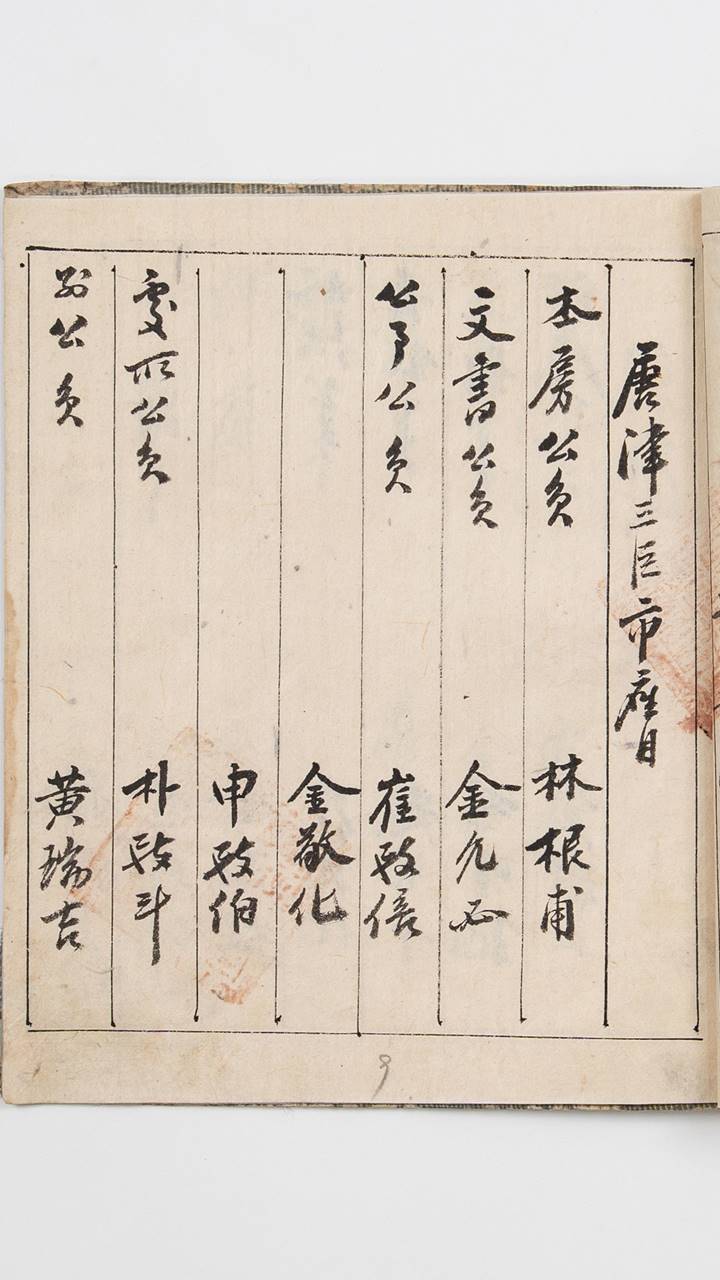 唐津三巨市座目
本房公員 林根甫
文書公員 金允必
公事公員 崔致
金敬化
申致伯
處所公員 朴致斗
別公員 黃瑞吉
9